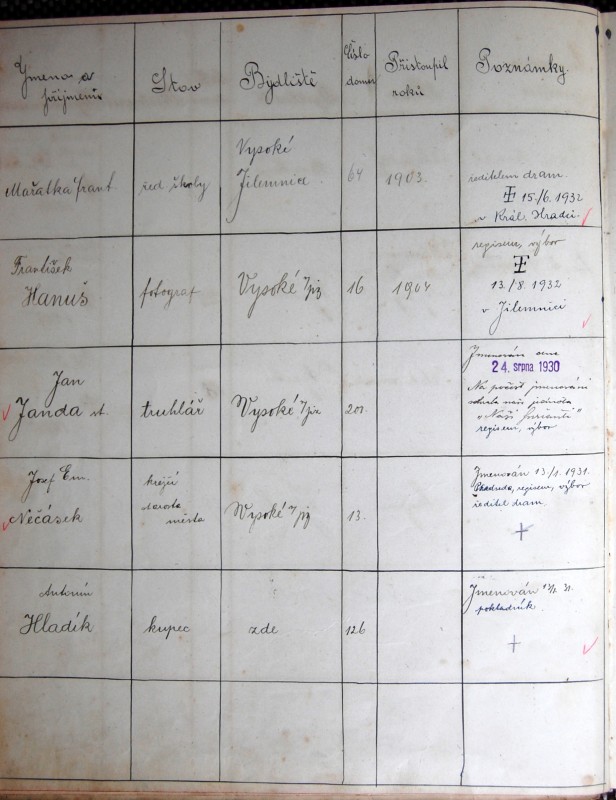 Jméno a
příjmení
Stav
Bydliště
Číslo
domu
Přistoupil
roků
Poznámky.
Mařatka frant.
řed školy
Vysoké
Jilemnice
64
1903.
ředitelem dram.
15./6. 1932
v Král. Hradci.
František
Hanuš
fotograf
Vysoké n/jiz
16
1904
regisem, výbor
13./8. 1932
v Jilemnici
Jan
Janda st.
truhlář
Vysoké n/jiz
201.
Jmenován
24. srpna 1930
Na počest jmenování
sehrála naše jednota
"Naši furianti"
regisem, výbor
Josef Em.
Nečásek
krejčí
starosta
města
Vysoké n/jiz
13.
Jmenován 13/1. 1931.
Předseda, regisem, výbor
ředitel dram.
Antonín
Hladík
kupec
zde
126
Jmenován 13/1. 31.
pokladník